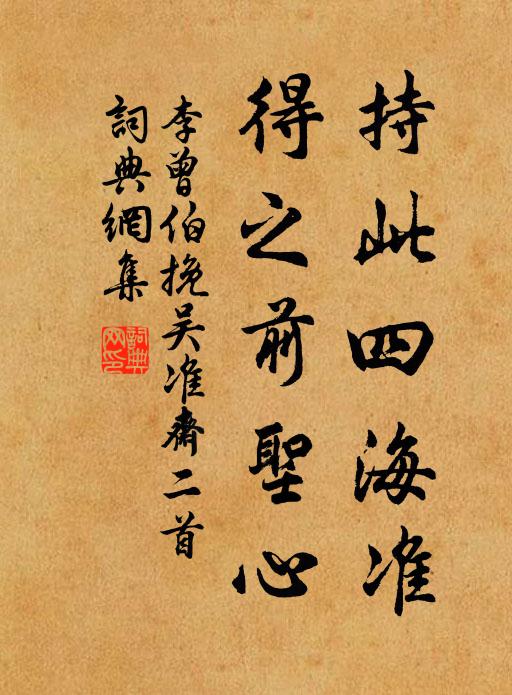 持此四海准
得之前聖心
李曾伯挽吴准齋二首
詞典網集
詞典
网印